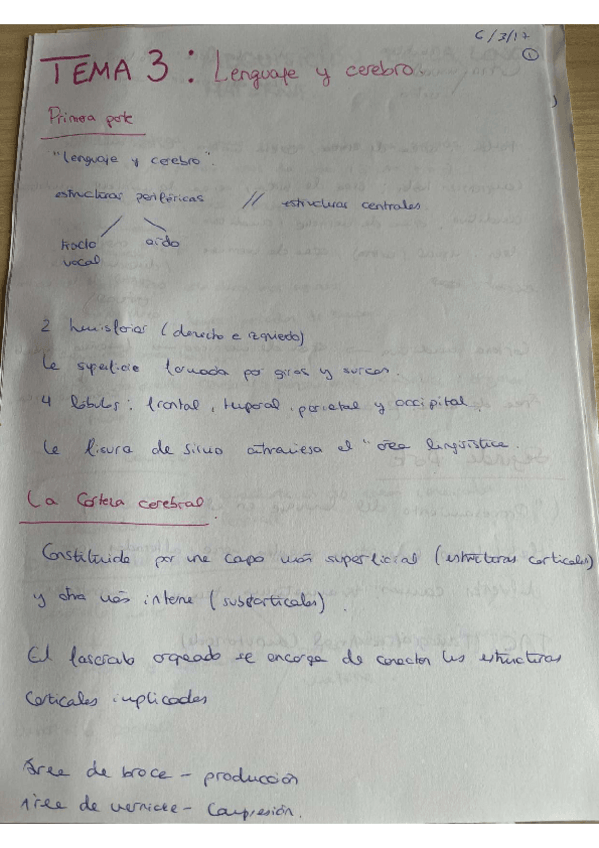 6/3/17
1
TEMA 3: Lenguaje y cerebro.
Primera parte
"Lenguaje y cerebro".
estructuras periféricas // estructuras centrales.
tracto vocal oído
2 hemisferios (derecho e izquierdo)
La superficie formada por giros y surcos.
4 lóbulos: frontal, temporal, parietal y occipital.
La fisura de silvio atraviesa el "área lingüística.
La Corteza cerebral.
Constituida por una capa más superficial (estructuras corticales)
y otra más interna (subcorticales).
El fascículo arqueado se encarga de conectar las estructuras
corticales implicadas
Área de broca - producción
Área de wernicke - Compresión.